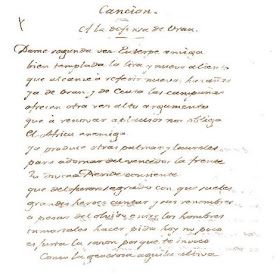 Cancion.
A la defensa de Oran.
Dame segunda vez Euterpe amiga
bien templada la lira, y nuevo aliento
que alcance a referir nuevas hazañas
ya de Oran, y de Ceuta las campañas
ofrecen otra vez alto argumento
que a renovar el nos obliga
el Africa enemiga
ya produce otras palmas, y laureles
para adornar del vencedor la frente
tu Preside
que del sagrado con que sueles
grandes heroes cantar, y sus renombres
a pesar del olvido, entre los hombres
inmortales hacer pida hoy no poco
es justa la razon porque te invoco
Como la generosa aguila altiva